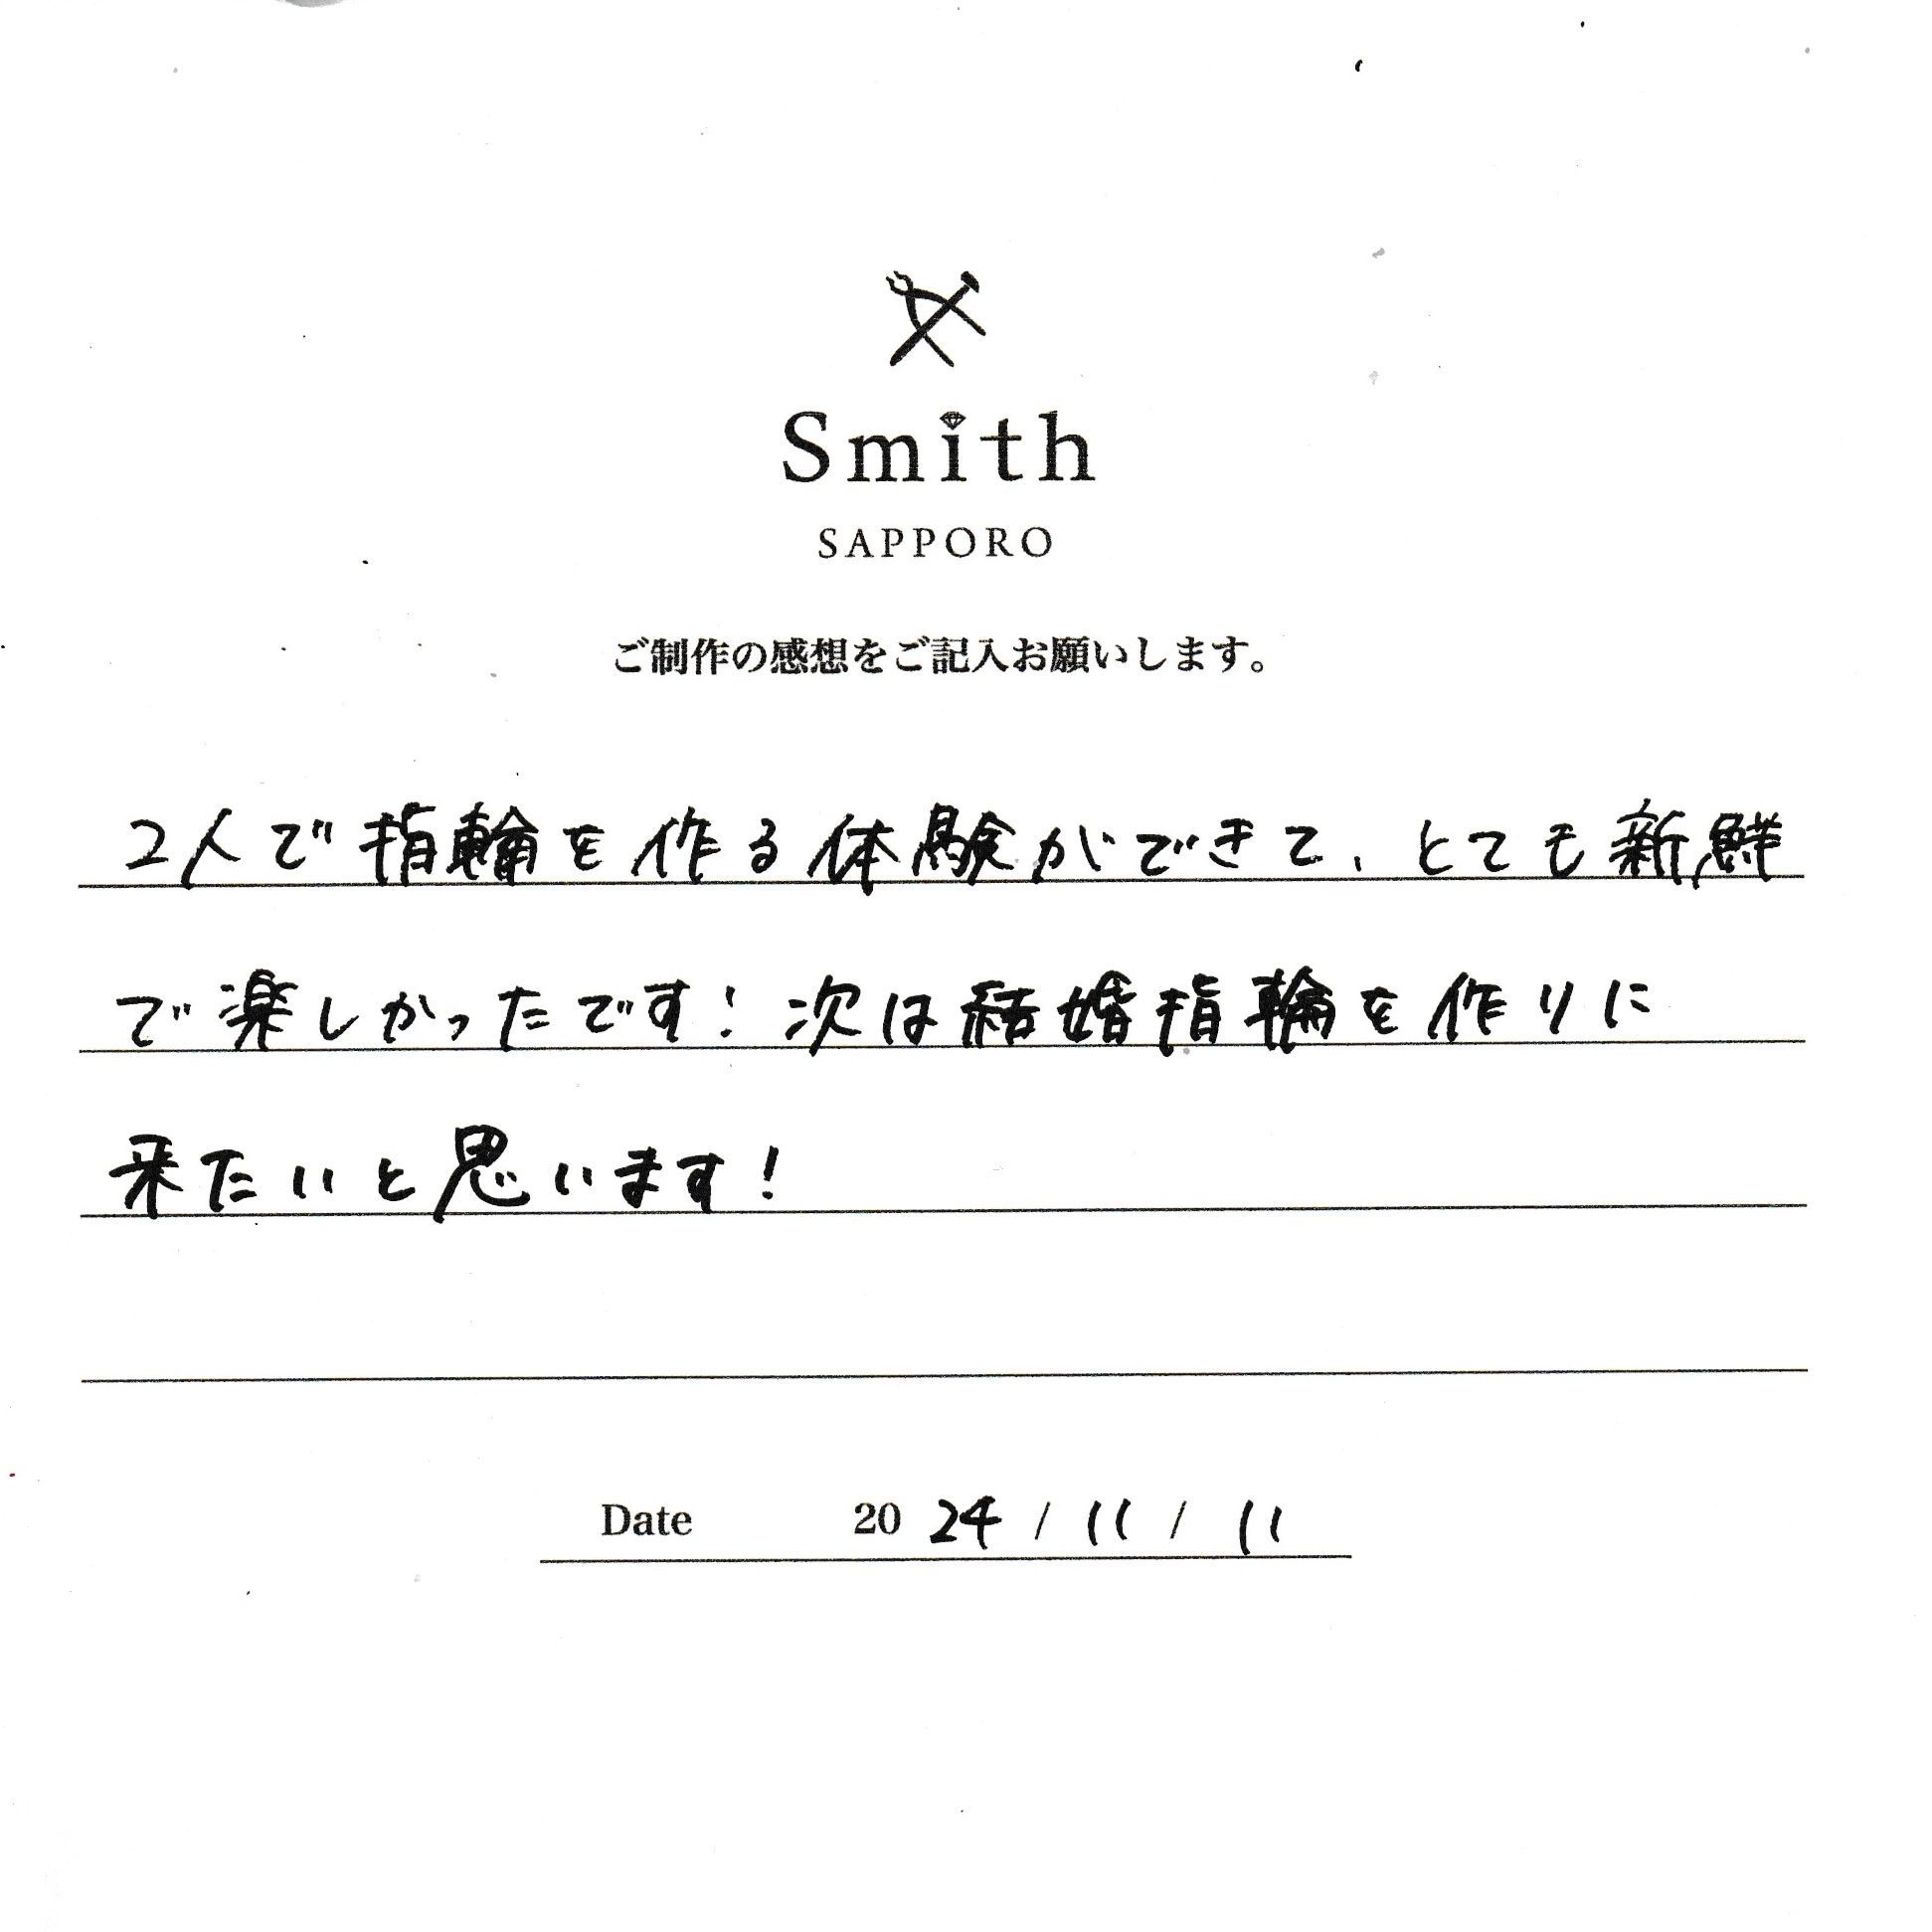 Smith
SAPPORO
ご制作の感想をご記入お願いします。
2人で指輪を作る体験ができて、とても新鮮
で楽しかったです！次は結婚指輪を作りに
来たいと思います！
Date 2024 / 11 / 11